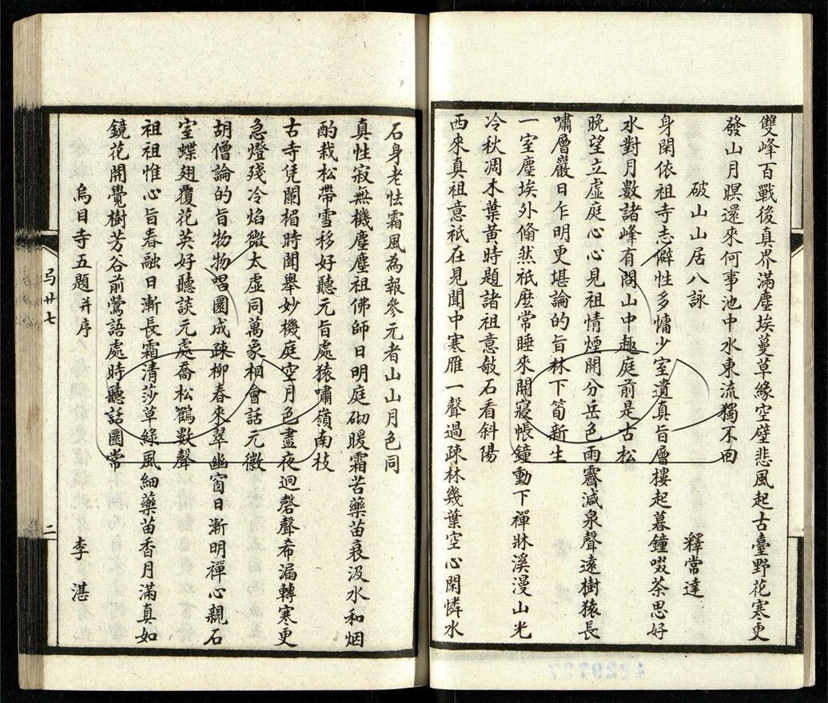 雙峰百戰後真界滿塵埃蔓草緣空壁悲風起古臺野花寒更
發山月暝還來何事池中水東流獨不回
破山山居八詠
釋常達
身閑依祖寺志僻性多慵少室遺真旨層樓起暮鐘啜茶思好
水對月數諸峰有問山中趣庭前是古松
晚望立虛庭心心見祖情煙開分岳色雨霽減泉聲遠樹猿長
嘯層巖日乍明更堪論的旨林下筍新生
一室塵埃外翛然祇麼常睡來開寢帳鐘動下禪牀溪漫山光
冷秋凋木葉黃時題諸祖意敧石看斜陽
西來真祖意祇在見聞中寒雁一聲過疎林幾葉空心閑憐水
石身老怯霜風為報參元者山山月色同
真性寂無機塵塵祖佛師日明庭砌暖霜苦藥苗衰汲水和烟
酌栽松帶雪移好聽元旨處猿嘯嶺南枝
古寺凭闌楯時聞舉妙機庭空月色盡夜迥磬聲希漏轉寒更
急燈殘冷焰微太虛同萬象相會話元微
胡僧論的旨物物唱圓成疎柳春來翠幽窗日漸明禪心親石
室蝶翅覆花英好聽談元處喬松鶴數聲
祖祖惟心旨春融日漸長霜清莎草綠風細藥苗香月滿真如
鏡花開覺樹芳谷前鶯語處時聽話圓常
烏目寺五題并序
李湛
弓廿七
二